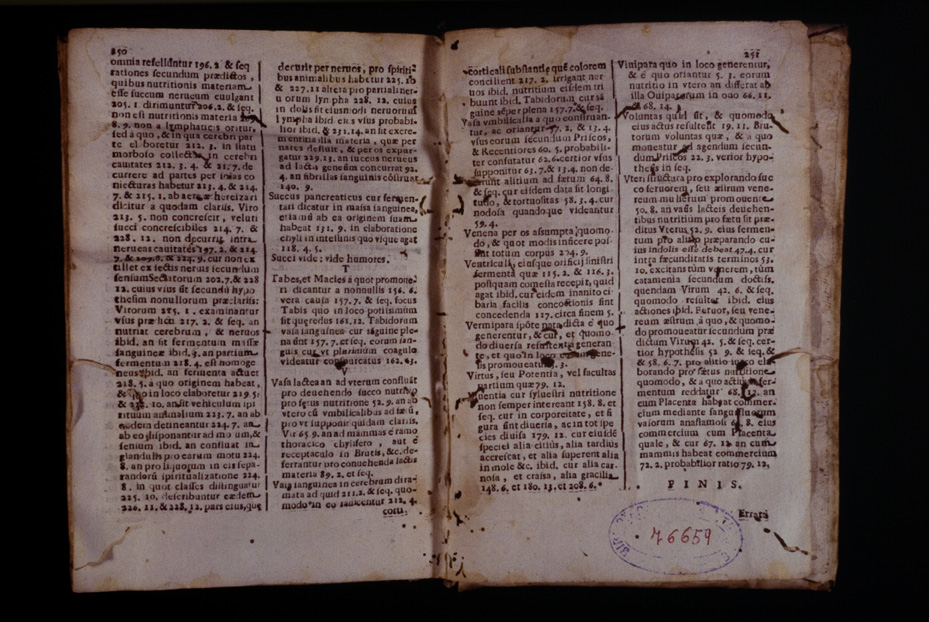 250
omnia refelluntur 196. 2. & seq
rationes secundum prædictos,
quibus nutritionis materiam
esse succum nerueum euulgant
205. 1. dirimuntur 206. 2. & seq.
non est nutritionis materia
8. 9. non a lymphaticis oritur,
sed à quo, & in qua cerebri par
te elaboretur 212. 3. in statu
morboso collectus in cerebri
cauitates 212. 3. 4. & 21. 7. de
currere ad partes per istas co
niecturas habetur 213. 4. & 214.
7. & 215. 1. ab acre
dicitur a quodam claris. Viro
213. 5. non concrescit, veluti
succi concrescibiles 214. 7. &
228. 12. non decurrit intra
nerueas cauitates 197. 2. & 214
7. & 209. 8. & 224. 9. cur non ex
tillet ex sectis neruis secundum
sensum Sectatorum 202. 7. & 228
12. cuius vius sit secundum hypo
thesim nonullorum præclaris:
Virorum 215. 1. examinantur
vsus præ dicti 217. 2. & seq. an
nutriat cerebrum, & neruos
ibid. an sit fermentum massæ
sanguineæ ibid. 9. an partium
fermentum 218. 4. est homoge
neus ibid. an fermenta actuet
218. 5. a quo originem habeat,
& quo in loco elaboretur 219. 5:
& 10. an sit vehiculum spi
rituum animalium 223. 7. an ab
eodem detineantur 224. 7. an
ab eo disponantur ad motum, &
sensum ibid. an confluat in
glandulis pro earum motu 224.
8. an pro liquorum in eis sepa
randorum spiritualizatione 224.
8. in quot classes distinguatur
225. 10. describuntur eædem
226. 11. & 228. 12. pars eius, quæ
decurit per neruos, pro spiriti
bus animalibus habetur 225. 10
& 227. 11 altera pro partialiner
u orum lympha 228. 12. cuius
in dolis sit eiusmodi neruorum
lympha ibid eius vsus probabi
lior ibid. & 231. 14. an sit excre
mentitia illa materia, quæ per
nares defluit, & per os expur
gatur 229. 13. an succus nerueus
ad lactis genesim concurrat 92.
4. an fibrillas sanguinis constituat
140. 9.
Succus pancreaticus cur fermen
tari dicatur in massa sanguinea,
etiam si ab ea originem suam
habeat 131. 9. in elaboratione
chyli in intestinis quo vsque agat
118. 4. 5.
Succi vide: vide humores.
T
Tabes, et Macies a quot promoue
ri dicantur a nonnullis 156. 6.
vera causa 157. 7. & seq. focus
Tabis quo in loco potissimum
sit quærendus 161. 12. Tabidorum
vasa sanguinea cur sanguine ple
na sint 157. 7. et seq. eorum san
guis cur vt plurimum coagulo
videatur conspurcatus 162. 13.
V
Vasa lactea an ad vterum confluãt
pro deuehendo succo nutritiuo
pro fœtus nutritione 52. 9. an ab
vtero cũ vmbilicalibus ad fœtũ,
pro vt supponit quidam clariss.
Vir 65. 9. an ad mammas è ramo
thoracico chylifero, aut è
receptaculo in Brutis, &c. de-
ferrantur pro conuehenda lactis
materia 89. 2. et seq.
Vasa sanguinea in cerebrum dira-
mata ad quid 211. 2. & seq. quo-
modo in eo radicentur 212. 4.
corti-
251
corticali substantiæ quẽ colorem
concilient 217. 2. irrigant ner
uos ibid. nutritium eisdem tri
buunt ibid. Tabidorum cur sã
guine sẽper plena 157. 7. & seq.
Vasa vmbilicalia a quo constituan-
tur, ac oriantur 57. 2. & 13. 4.
vsus eorum secundum Priscos,
& Recentiores 60. 5. probabili-
ter confutatur 62. 6. certior vsus
supponitur 63. 7. & 13. 4. non de-
ferunt alitium ad fœtum 64. 8.
& seq. cur eisdem data sit longi
tudo, & tortuositas 58. 3. 4. cur
nodosa quandoque videantur
59. 4.
Venena per os assumpta, quomo-
do, & quot modis inficere pos-
sint totum corpus 274. 9.
Ventriculi, eiusque orificij sinistri
fermenta quæ 115. 2. & 116. 3.
postquam comesta recepit, quid
agat ibid. cur eidem inanito ci-
baria facilis concoctionis sint
concedenda 117. circa finem 5.
Vermi para spõte nata dicta è quo
generentur, & cur, et quomo-
do diuersa referent a generan-
te, et quo in loco eorum gene-
sis promoueatur 5. 3.
Virtus, seu Potentia, vel facultas
partium quæ 79. 12.
Viuentia cur sylvestri nutritione
non semper interenant 158. 8. et
seq. cur in corporeitate, et fi
gura sint diuersa, ac in tot spe
cies diuisa 179. 12. cur eiusdẽ
speciei alia citiùs, alia tardius
accrescat, et alia superent alia
in mole &c. ibid. cur alia car-
nosa, et crassa, alia gracilia
148. 6. et 180. 13. et 208. 6.
Viuipara quo in loco generentur,
& è quo oriantur 5. 3. eorum
nutritio in vtero an differat ab
illa Ouiparorum in ouo 66. 11.
& 68. 14.
Voluntas quid sit, & quomodo
eius actus resultent 19. 11. Bru-
torum voluntas quæ, & a quo
moneatur ad agendum secun-
dum Priscos 22. 3. verior hypo-
thesis in seq.
Vteri structura pro explorando suc
co seruorem, seu æstrum vene-
reum mulierum promouente
50. 8. an vasa lacteis deuehen-
tibus nutritium pro fœtu sit præ-
ditus Vterus 52. 9. eius fermen-
tum pro alitio præparando cu-
ius indolis esse debeat 47. 4. cur
intra fœcunditatis terminos 53.
10. excitans tùm venerem, tùm
catamenia secundum doctiss.
quendam Virum 42. 6. & seq.
quomodo resultet ibid. eius
actiones ibid. Furor, seu vene-
reum æstrum à quo, & quomo-
do promoueatur secundum præ
dictum Virum 42. 5. & seq. cer-
tior hypothesis 52 9. & seq. &
& 58. 6. 7. pro alitio succo ela-
borando pro fœtus nutritione
quomodo, & a quo actiuum fer-
mentum reddatur 68. an
cum Placenta habeat commer-
cium mediante sanguineorum
vasorum anastomosi 8. eius
commercium cum Placenta
quale, & cur 67. 12. an cum
mammis habeat commercium
72. 2. probabilior ratio 79. 12.
FINIS.
Errata
76659